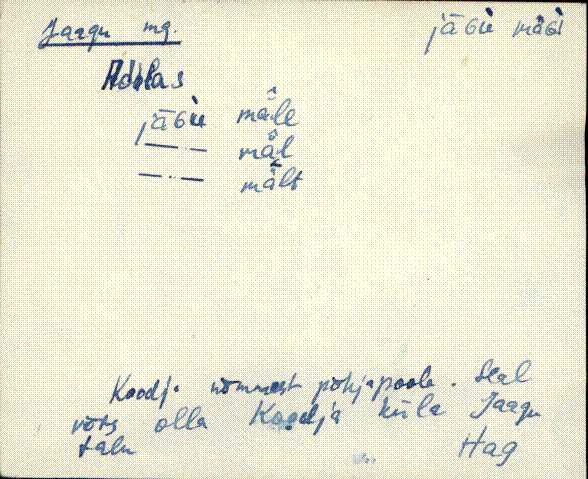 Jaagu mg.
jāGù mäGì
Adilas
jāGù mäle
—·— mäl
—·— mält
Koodja nõmmest põhjapoole. Seal
võts olla Koodja küla Jaagu
talu
Hag